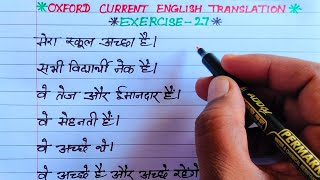 *OXFORD CURRENT ENGLISH TRANSLATION*
*EXERCISE-27*
मेरा स्कूल अच्छा है।
सभी विद्यार्थी नेक हैं।
वे तेज और ईमानदार हैं।
वे मेहनती हैं।
वे अच्छे थे।
वे अच्छे हैं और अच्छे रहेंगे